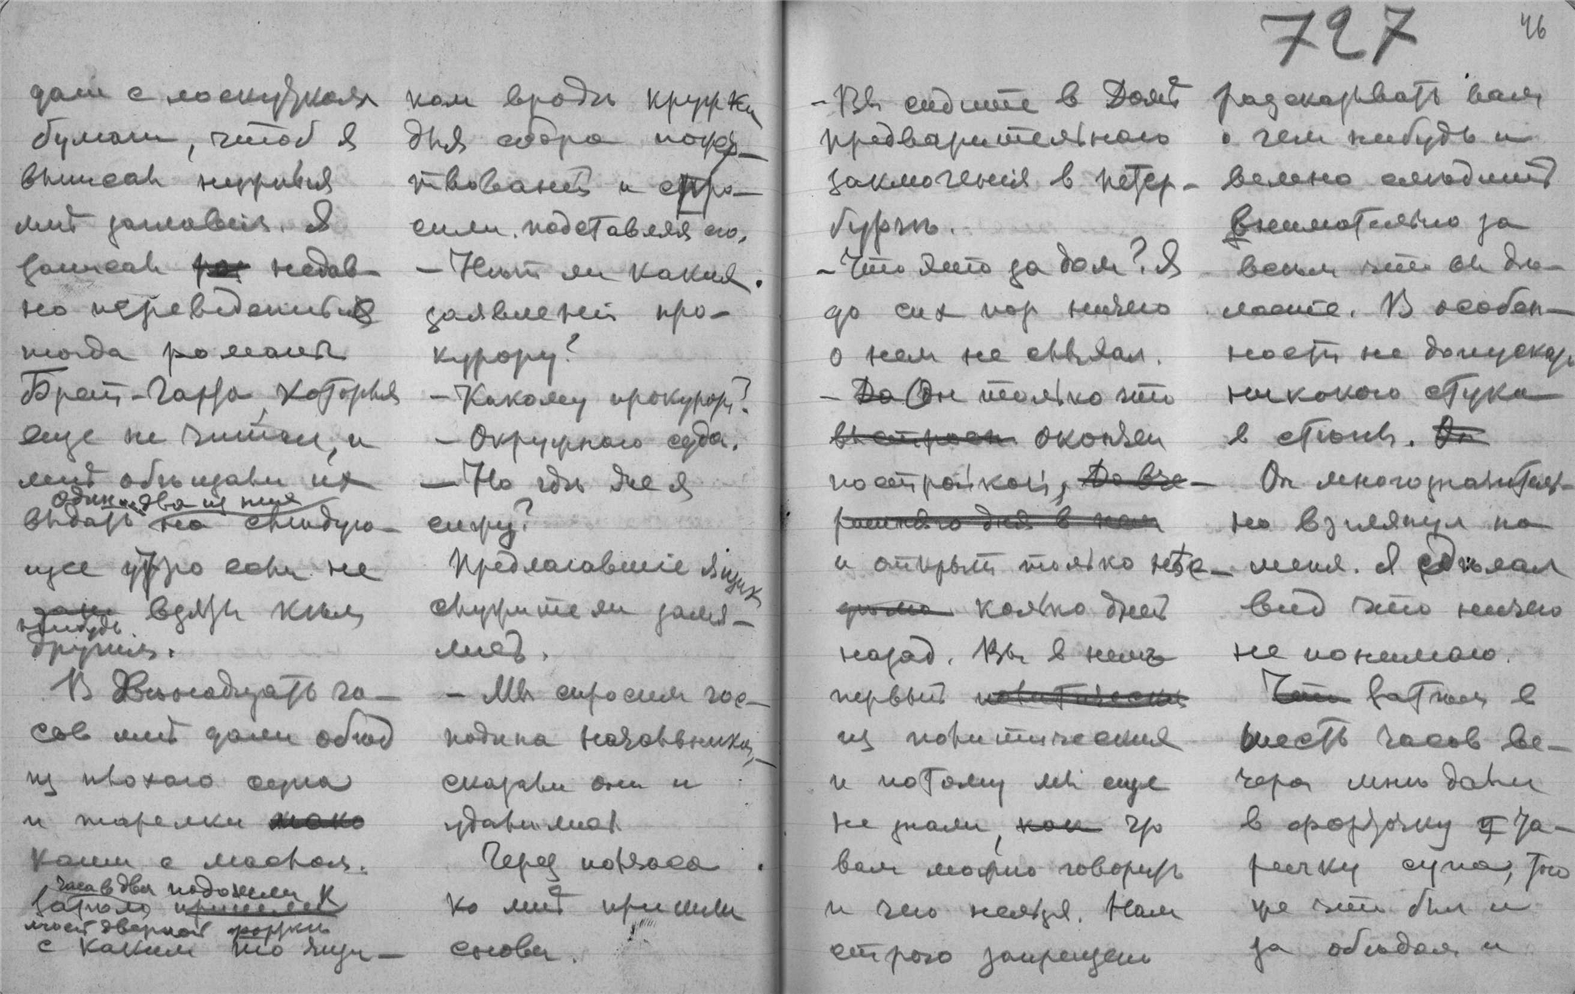 727
46
дали с лоскутком
бумаги, чтоб я
выписал нужныя
мнѣ заглавія. Я
записал недав-
но переведенные
тогда романы
Брет-Гарта, которыя
еще не читал, и
мнѣ обѣщали их
один или два из них
выдать на слѣдую-
щее утро если не
взяты кѣм
нибудь
другим.
В двѣнадцать ча-
сов мнѣ дали обѣд
из плохого супа
и тарелки
каши с маслом.
часа в два подошли к
Затѣмъ пришли
моей дверной форткѣ
с каким то ящи-
ком вродѣ кружки
для сбора пожер-
твованій и спро-
сили, подставляя его,
- Нѣт ли каких
заявленій про-
курору?
- Какому прокурору?
- Окружного суда.
- Но гдѣ же я
сижу?
Предлагавшіе ящик
служители замя-
лись.
- Мы спросим гос-
подина начальника,-
сказали они и
удалились.
Через полчаса
ко мнѣ пришли
снова.
- Вы сидите в Домѣ
предварительного
заключенія в Петер-
бургѣ.
- Что это за дом? Я
до сих пор ничего
о нем не слыхал.
- Да Он только что
выстроен окончен
постройкой, До вче-
рашняго дня в нем
и открыт только нѣс-
колько дней
назад. Вы в немъ
первый политический
из политических
и потому мы еще
не знали, как что
вам можно говорить
и чего нельзя. Нам
строго запрещено
разсказывать вам
о чем нибудь и
велено слѣдить
внимательно за
всѣм что вы дѣ-
лаете. В особен-
ности не допускать
никакого стука
в стѣны. Он
Он многозначитель-
но взглянул на
меня. Я сдѣлал
вид что ничего
не понимаю.
Что Затѣм в
шесть часов ве-
чера мнѣ дали
в форточку та-
релку супа, того
же что был и
за обѣдом и